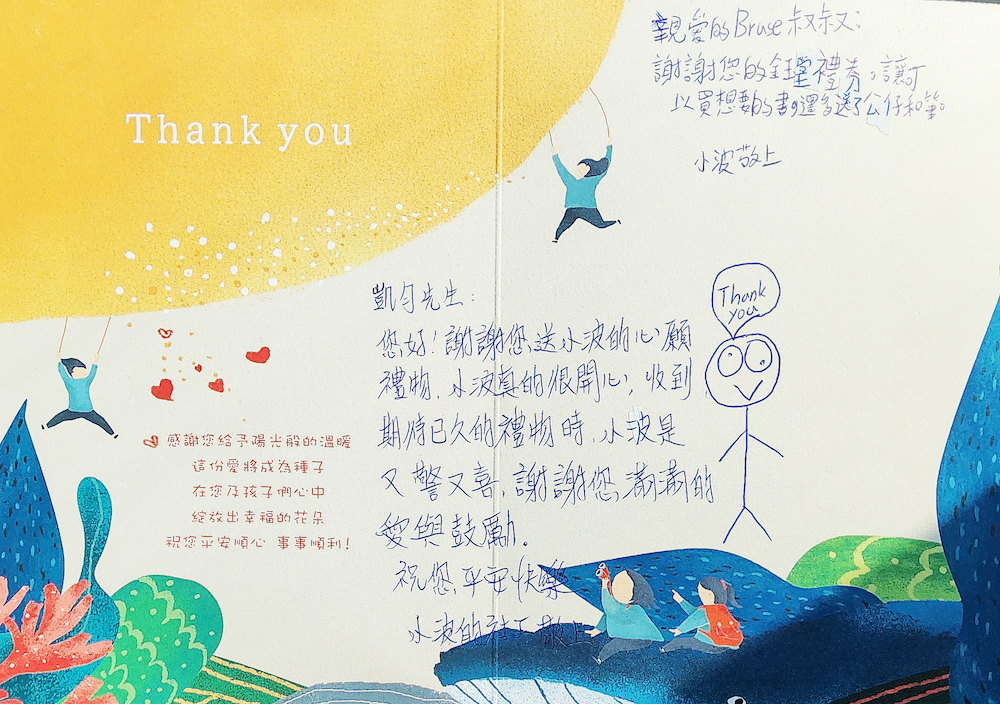 Thank you
親愛的Bruse叔叔：
謝謝您的鈺瑩禮券，讓可
以買想要的書，還多送了公仔和筆。
小波敬上
Thank
you
凱勻先生：
您好！謝謝您送小波的心願
禮物，小波真的很開心，收到
期待已久的禮物時，小波是
又警又喜，謝謝您滿滿的
愛與鼓勵。
祝您平安快樂
小波的社工敬上
感謝您給予陽光般的溫暖
這份愛將成為種子
在您及孩子們心中
綻放出幸福的花朵
祝您平安順心 事事順利！